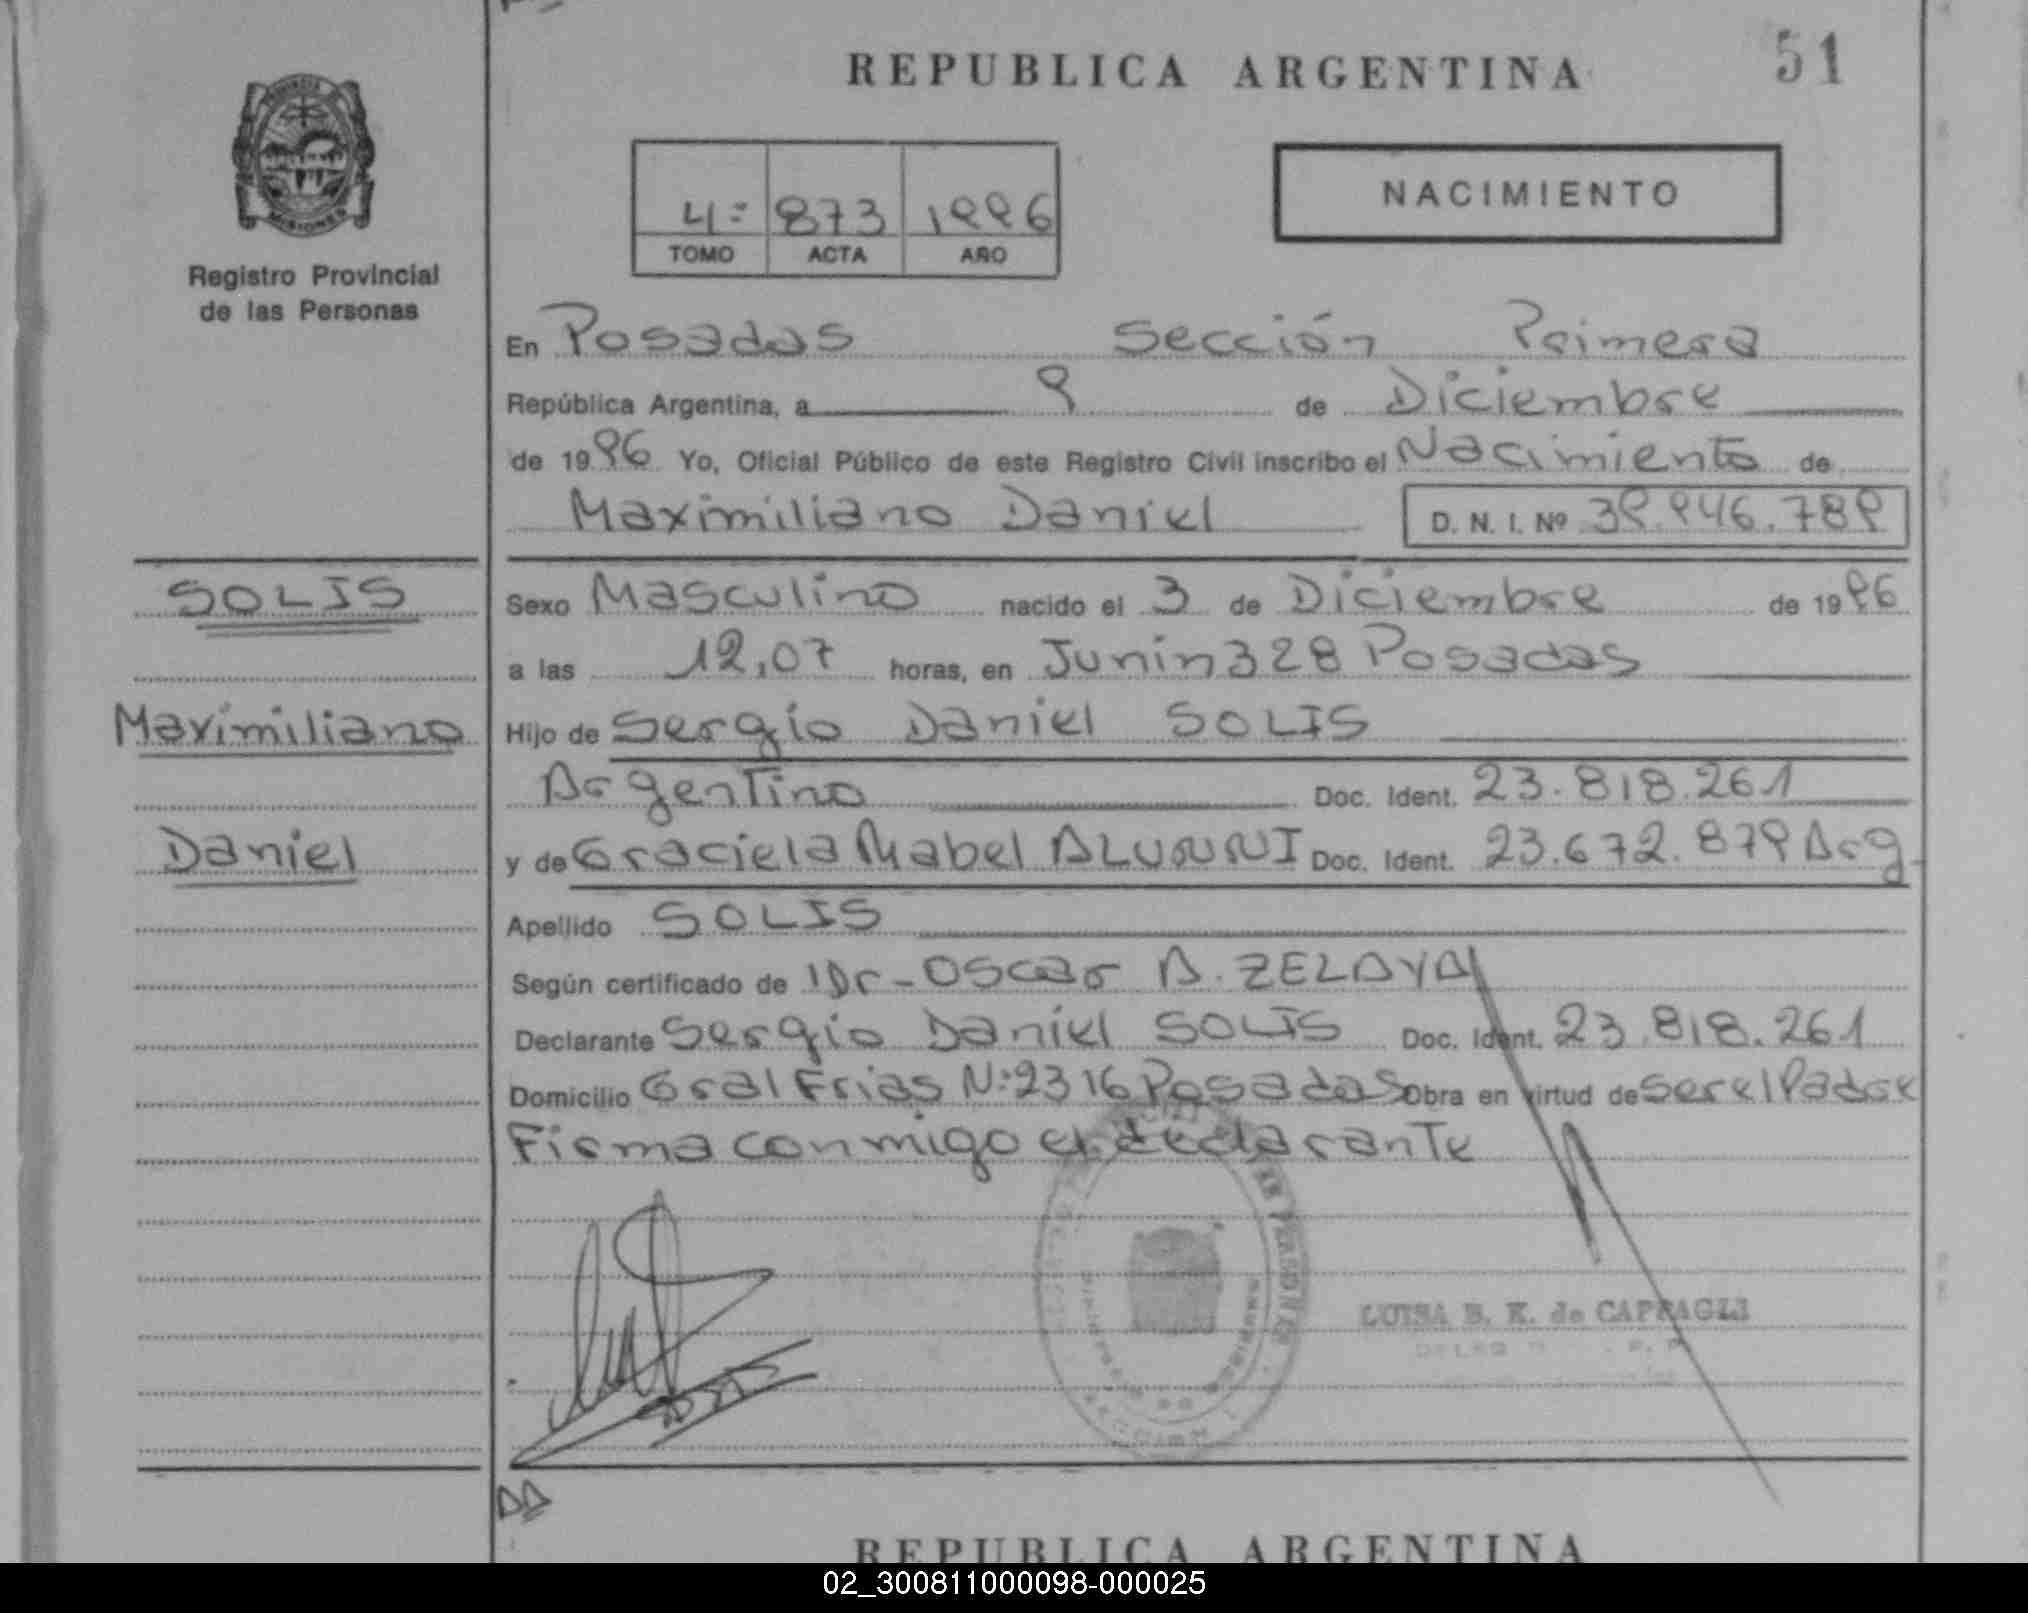 REPUBLICA ARGENTINA
51
Registro Provincial
de las Personas
4º 873 1996
TOMO ACTA AÑO
NACIMIENTO
En Posadas Sección Primera
República Argentina, a 9 de Diciembre
de 1996 Yo, Oficial Público de este Registro Civil inscribo el Nacimiento de
Maximiliano Daniel D. N. I. Nº 39.946.789
SOLIS
Maximiliano
Daniel
Sexo Masculino nacido el 3 de Diciembre de 1996
a las 12,07 horas, en Junin 328 Posadas
Hijo de Sergio Daniel SOLIS
Argentino Doc. Ident. 23.818.261
y de Graciela Mabel ALUNNI Doc. Ident. 23.672.879 Arg.
Apellido SOLIS
Según certificado de Dr- Oscar A. ZELAYA
Declarante Sergio Daniel SOLIS Doc. Ident. 23.818.261
Domicilio Gral Frias Nº 2316 Posadas Obra en virtud de ser el Padre
Firma conmigo el declarante
LUISA B. K. de
REPUBLICA ARGENTINA
02_300811000098-000025